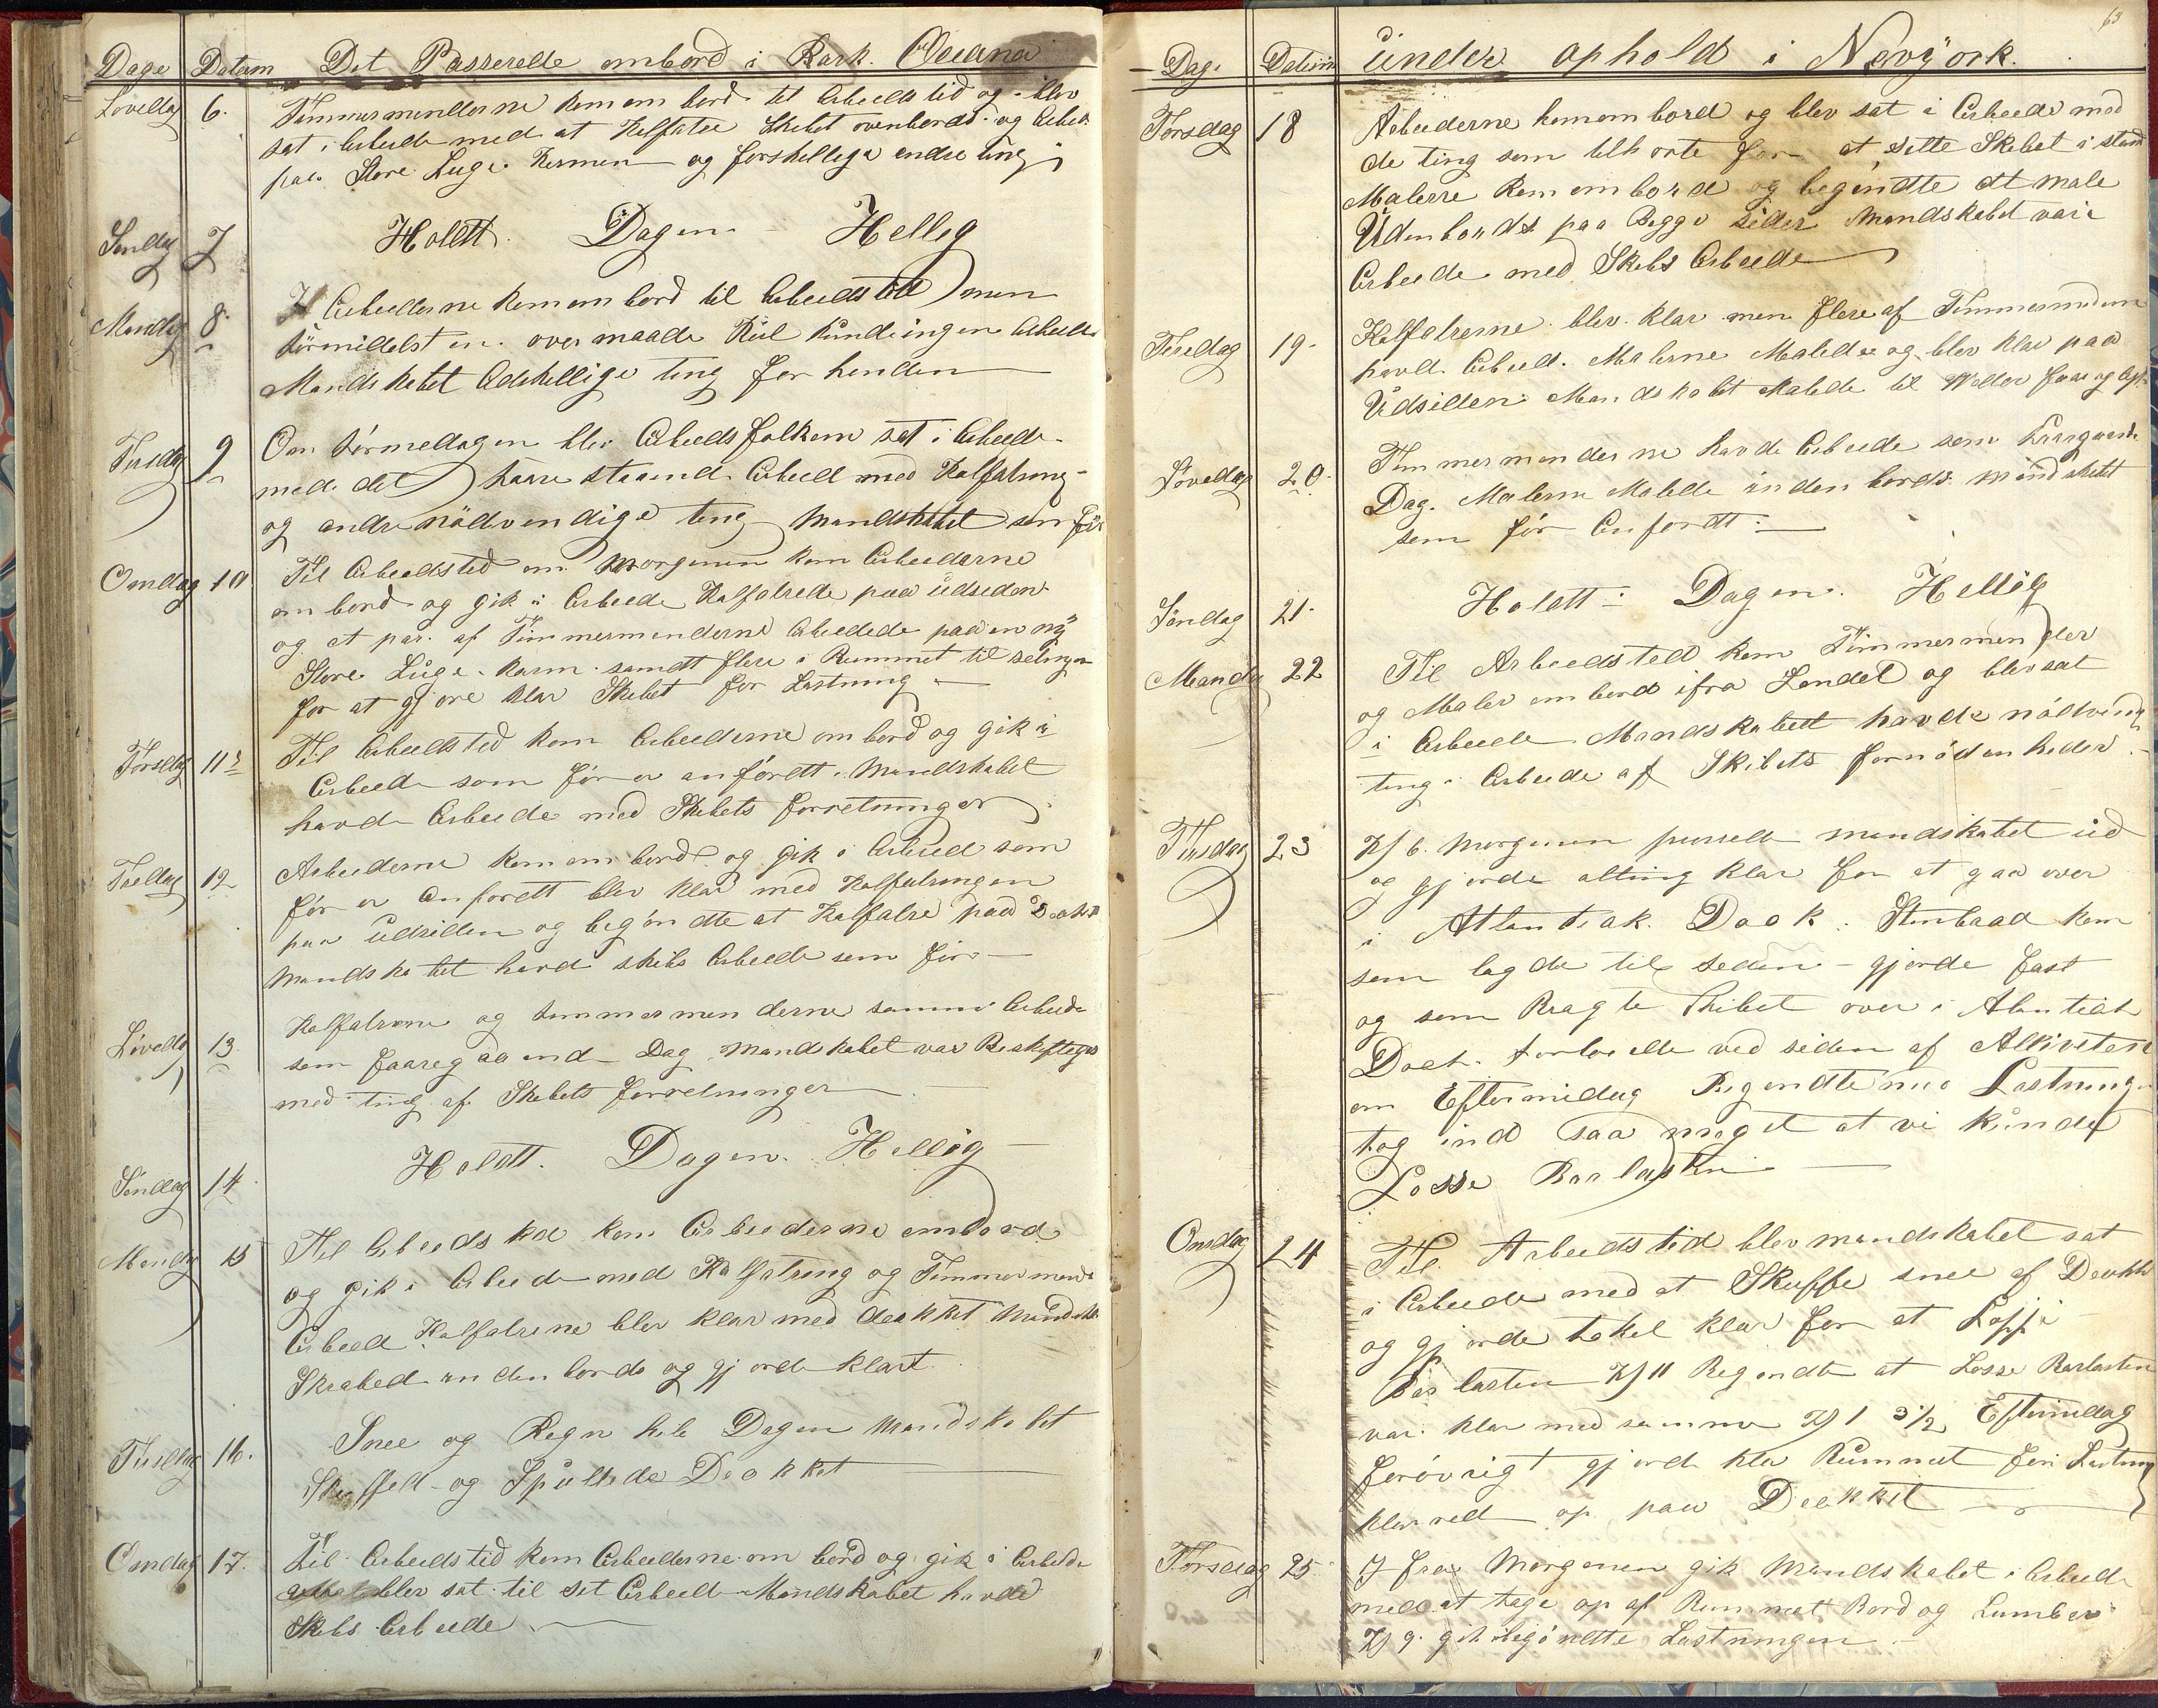 Dage Datum Det Passerede ombord i Bark. Oceana
Lövedag 6. Timmermenderne kom om bord til Arbeids tid og blev
sat i Arbeide med at Kalfatre Skibet ovenbords og Arbeide
paa Store Luge Karmen og forskellige andre ting
Söndag 7 Holdtt Dagen Hellig
Mandag 8 Arbeiderne kom om bord til Arbeidstid men
formidelst en over maade Kul kunde ingen Arbeide
Mandskabet Adskillige ting for henden
Tirsdag 9 Om formedagen blev Arbeidsfolkene sat i Arbeide
med det haare staaend Arbeid med Kalfatring
og andre nödvendige ting Mandskabet som för
Onsdag 10 Til Arbeidstid om Morgenen kom Arbeiderne
om bord og gik i Arbeide Kalfatrede paa udsiden
og et par af Timmermenderne Arbeidede paa en ny
Store Luge Karm samdt flere i Rummet til
for at gjøre klar Skibet for Lastning
Torsdag 11 Til Arbeidstid kom Arbeiderne om bord og gik i
Arbeide som för er anfördtt Mandskabet
havde Arbeide med Skibets forretninger
Fredag 12 Arbeiderne kom om bord og gik i Arbeid som
för er Anfördtt blev klar med Kalfatringen
paa udsiden og begöndte at Kalfatre paa Deck
Mandskabet havde skibs Arbeide som för
Lövedag 13 Kalfatrerne og tommermenderne samme Arbeide
som faaregaaend Dag Mandskabet var Beskjeftiget
med ting af Skibets forretninger
Söndag 14 Holdtt. Dagen. Hellög
Mandag 15 Til Arbeidstid kom Arbeiderne ombord
og gik i Arbeide med Kalfatring og Timmermend
Arbeed Kalfatrerne blev klar med deckket Mandsk.
Skrabed inden bords og gjorde klart
Tirsdag 16. Snee og Regn hele Dagen Mandskabet
Skuffed og Spulede Deckket
Onsdag 17. Til Arbeidstid kom Arbeiderne om bord og gik i Arbeide
blev sat til sit Arbeid Mandskabet havde
Skibs Arbeide
63
Dag. Datum under ophold i Newyörk.
Torsdag 18 Arbeiderne kom om bord og blev sat i Arbeide med
de ting som tilhorte for at sette Skibet i stand
Malerne kom om bord og begöndte at male
Udenbords paa Begge sider Mandskabet var i
Arbeide med Skibs Arbeide
Fredag 19. Kalfatrerne blev klar men flere af Timmermendene
havde Arbeid. Malerne Malede og blev klar paa
Udsiden Mandskabet Malede
Lövedag 20 Timmermenderne havde Arbeide som
Dag. Malerne Malede inden bords mandskabt
som för Anfördt
Söndag 21. Holdtt Dagen. Hellög
Mandag 22 Til Arbeidstid kom Timmermender
og Maler om bord ifra Landet og blev sat
i Arbeide Mandskabett havde nödvendig
ting i Arbeide af Skibets fornödenheder.
Tirsdag 23 Kl 6. Morgenen purrede mandskabet ud
og gjorde alting klar for at gaa over
i Atlantiak. Dock. Stimbaad kom
som lagde til seden gjorde fast
og som Bragte Skibet over i Atlantiak
Dock fortoiede ved siden af
om Eftermidag Begöndte med Lastning
tog ind saa meget at vi kunde
Losse Barlasten
Onsdag 24 Til Arbeidstid blev mandskabet sat
i Arbeide med at Skuffe snee af Deckket
og gjorde takel klar for at Loffe
Barlasten Kl 11 Begöndte at Losse Barlasten
var klar med samme Kl 3½ Eftermidag
forövrigt gjorde klar Rummet for Lastning
klarred op paa Deckket
Torsdag 25 I fra Morgenen gik Mandskabet i Arbeide
med at tage op af Rummet Bord og Lumber
Kl 9. begöndtte Lastningen